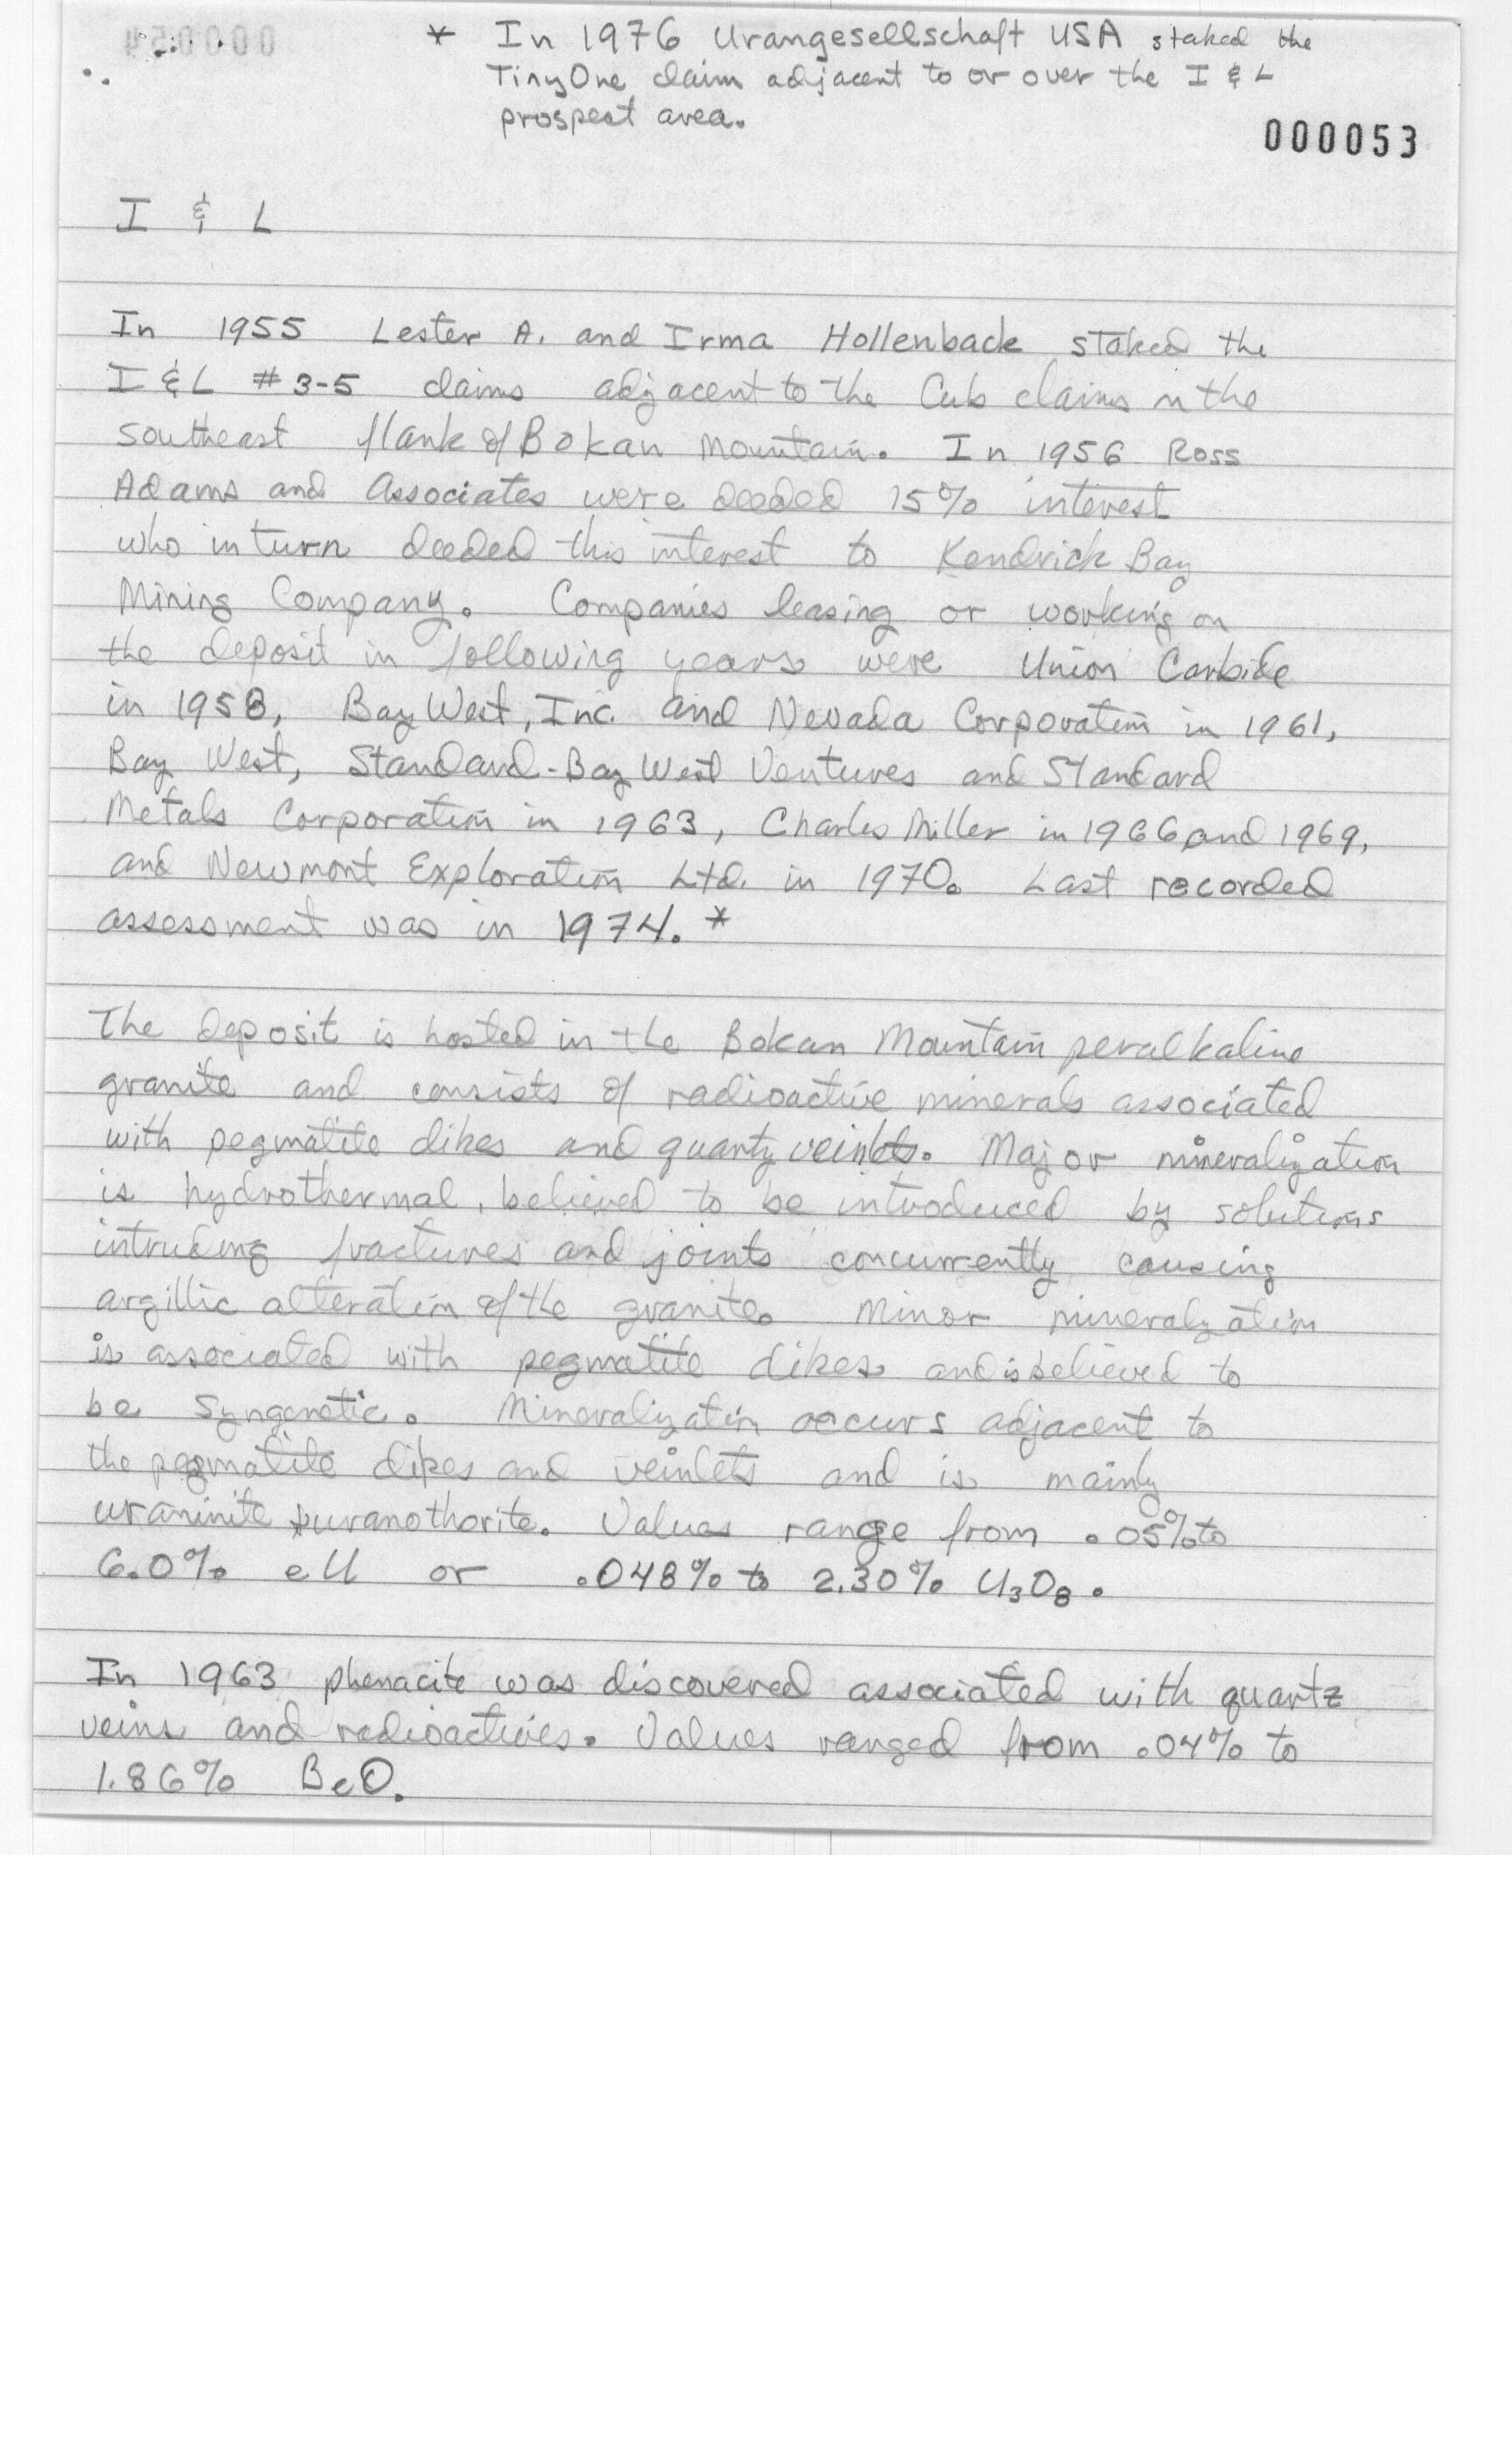 * In 1976 Urangesellschaft USA staked the
Tiny One claim adjacent to or over the I & L
prospect area.
000053
I & L
In 1955 Lester A. and Irma Hollenback staked the
I & L # 3-5 claims adjacent to the Cub claims n the
southeast flank of Bokan Mountain. In 1956 Ross
Adams and Associates were deeded 15% interest
who in turn deeded this interest to Kendrick Bay
Mining Company. Companies leasing or working on
the deposit in following years were Union Carbide
in 1958, Bay West, Inc. and Nevada Corporation in 1961,
Bay West, Standard-Bay West Ventures and Standard
Metals Corporation in 1963, Charles Miller in 1966 and 1969,
and Newmont Exploration Ltd. in 1970. Last recorded
assessment was in 1974. *
The deposit is hosted in the Bokan Mountain peralkaline
granite and consists of radioactive minerals associated
with pegmatite dikes and quartz veinlets. Major mineralization
is hydrothermal, believed to be introduced by solutions
intruding fractures and joints concurrently causing
argillic alteration of the granite. Minor mineralization
is associated with pegmatite dikes and is believed to
be syngenetic. Mineralization occurs adjacent to
the pegmatite dikes and veinlets and is mainly
uraninite & uranothorite. Values range from .05% to
6.0% eU or .048% to 2.30% U3O8.
In 1963 phenacite was discovered associated with quartz
veins and radioactives. Values ranged from .04% to
1.86% BeO.